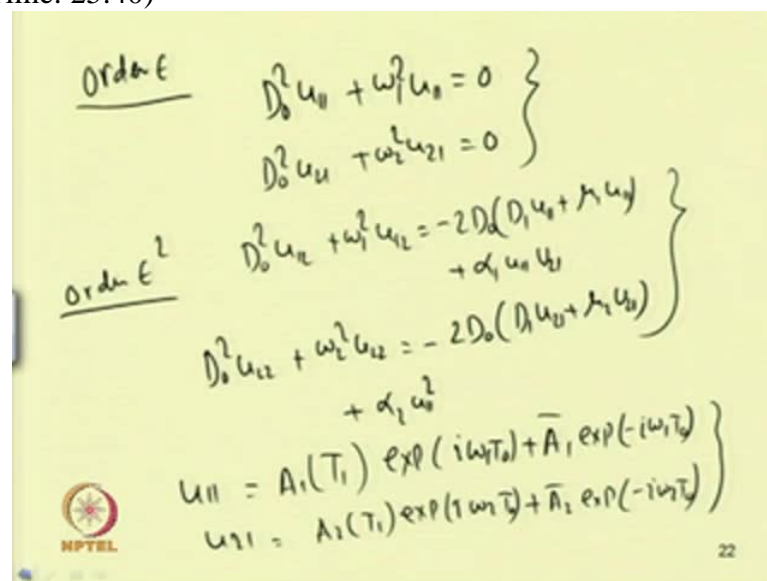 Time: 23:40)
Order ϵ D₀²u₁₁ + ω₁²u₁₁ = 0
D₀²u₂₁ + ω₂²u₂₁ = 0
Order ϵ² D₀²u₁₂ + ω₁²u₁₂ = -2D₀(D₁u₁₁ + μ₁u₁₁)
+ α₁u₁₁u₂₁
D₀²u₂₂ + ω₂²u₂₂ = -2D₀(D₁u₂₁ + μ₂u₂₁)
+ α₂u₁₁²
u₁₁ = A₁(T₁) exp(iω₁T₀) + A̅₁ exp(-iω₁T₀)
u₂₁ = A₂(T₁) exp(iω₂T₀) + A̅₂ exp(-iω₂T₀)
NPTEL
22